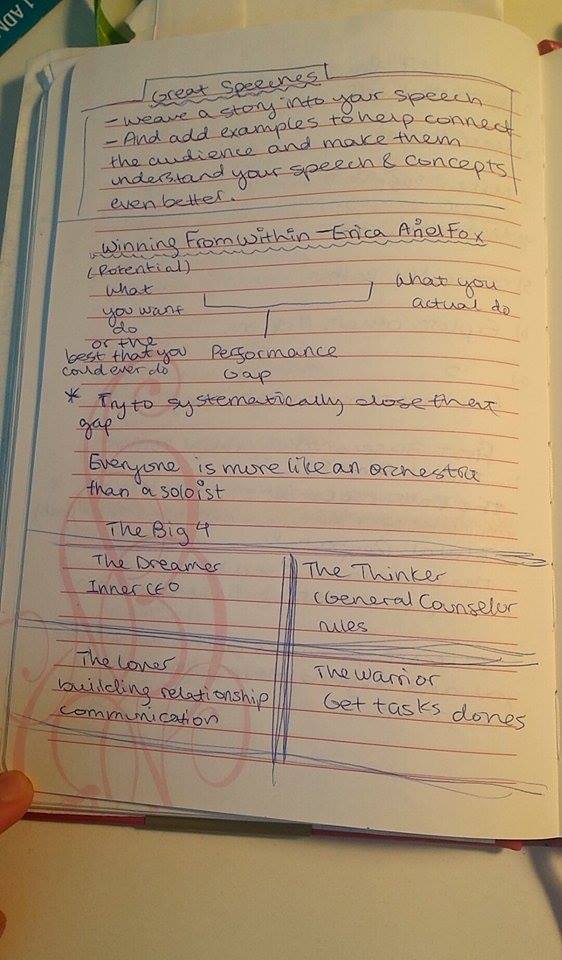 Great Speeches
- Weave a story into your speech
- And add examples to help connect
the audience and make them
understand your speech & concepts
even better.
Winning From Within - Erica Ariel Fox
(Potential)
What
you want
do
or the
best that you
could ever do
What you
actual do
Performance
Gap
* Try to systematically close that
gap
Everyone is more like an orchestra
than a soloist
The Big 4
The Dreamer
Inner CEO
The Thinker
(General Counselor
rules
The Lover
building relationship
communication
The Warrior
Get tasks dones